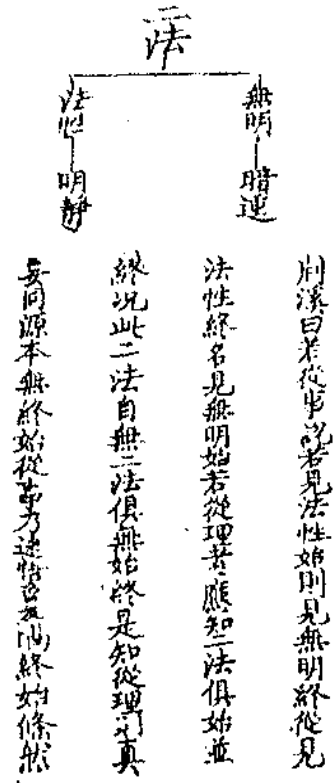 二法
無明—暗運
法性—明静
荊溪曰若從事說若見法性始則見無明終從見
法性終名見無明始若從理者應知二法俱始並
終況此二法自無二法俱無始終是知從理真
妄同源本無終始從事乃迷悟終始條然